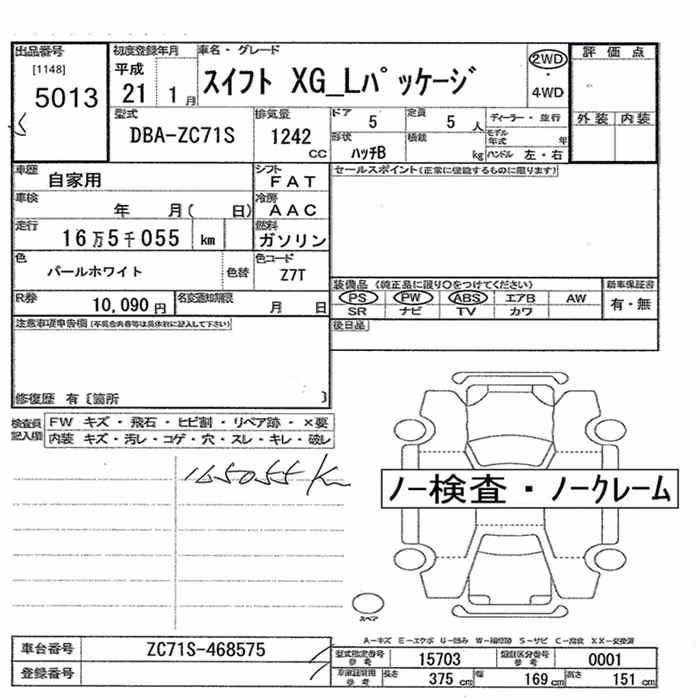 出品番号 初度登録年月 車名・グレード 評価点
[1148] 平成 2WD
5013 21 1月 スイフト XG_Lパッケージ ・
4WD
型式 排気量 ドア 定員 ディーラー・並行 外装 内装
DBA-ZC71S 1242 CC 5 5 人 モデル年式 年
形状 積載
ハッチB kg ハンドル 左・右
車歴 自家用 シフト FAT セールスポイント(正常に機能するものに限ります)
車検 年 月( 日) 冷房 AAC
走行 16万5千055 km 燃料 ガソリン
色 パールホワイト 色替 色コード Z7T
装備品 (純正品に限り○をつけてください) 新車保証書
R券 10,090円 名変通知期限 月 日 PS PW ABS エアB AW 有・無
SR ナビ TV カワ
注意事項申告欄(不具合内容等は具体的に記入して下さい) 後日品
修復歴 有〔箇所 〕
検査員記入欄 FW キズ・飛石・ヒビ割・リペア跡・×要
内装 キズ・汚レ・コゲ・穴・スレ・キレ・破レ
165055 Km
ノー検査・ノークレーム
スペア
A-キズ E-エクボ U-凹み S-サビ C-腐食 XX-交換済
車台番号 ZC71S-468575 型式指定番号 参考 15703 類別区分番号 参考 0001
登録番号 参考 長さ 375 cm 幅 169 cm 高さ 151 cm